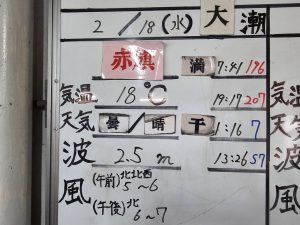 2/18(水) 大潮
赤旗 満 7:41 196
気温 18℃ 19:17 207
天気 曇/晴 干 1:16 7
波 2.5m 13:26 57
風 (午前)北北西 5~6
(午後)北 6~7
気
天
波
風